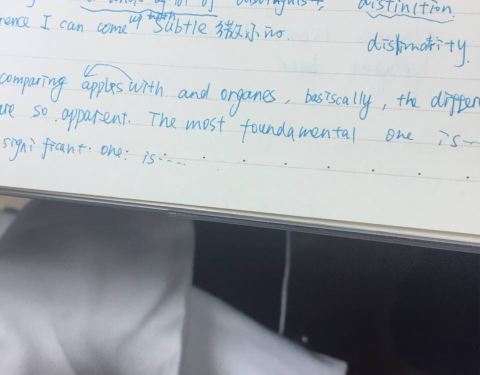 distinction.
rence I can come up with subtle 微小的.
dissimilarity.
comparing apples with and organes, basiscally, the differen
are so apparent. The most foundamental one is...
significant. one. is....